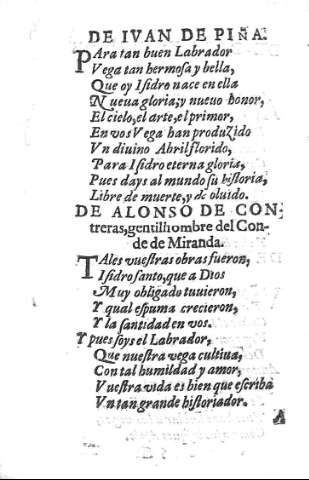 DE IVAN DE PIÑA.
PAra tan buen Labrador
Vega tan hermosa y bella,
Que oy Isidro nace en ella
Nueua gloria, y nueuo honor,
El cielo, el arte, el primor,
En vos Vega han produzido
Vn diuino Abril florido,
Para Isidro eterna gloria,
Pues days al mundo su historia,
Libre de muerte, y de oluido.
DE ALONSO DE CON
treras, gentilhombre del Con-
de de Miranda.
TAles vuestras obras fueron,
Isidro santo, que a Dios
Muy obligado tuuieron,
Y qual espuma crecieron,
Y la santidad en vos.
Y pues soys el Labrador,
Que nuestra vega cultiua,
Con tal humildad y amor,
Vuestra vida es bien que escriba
Vn tan grande historiador.
A